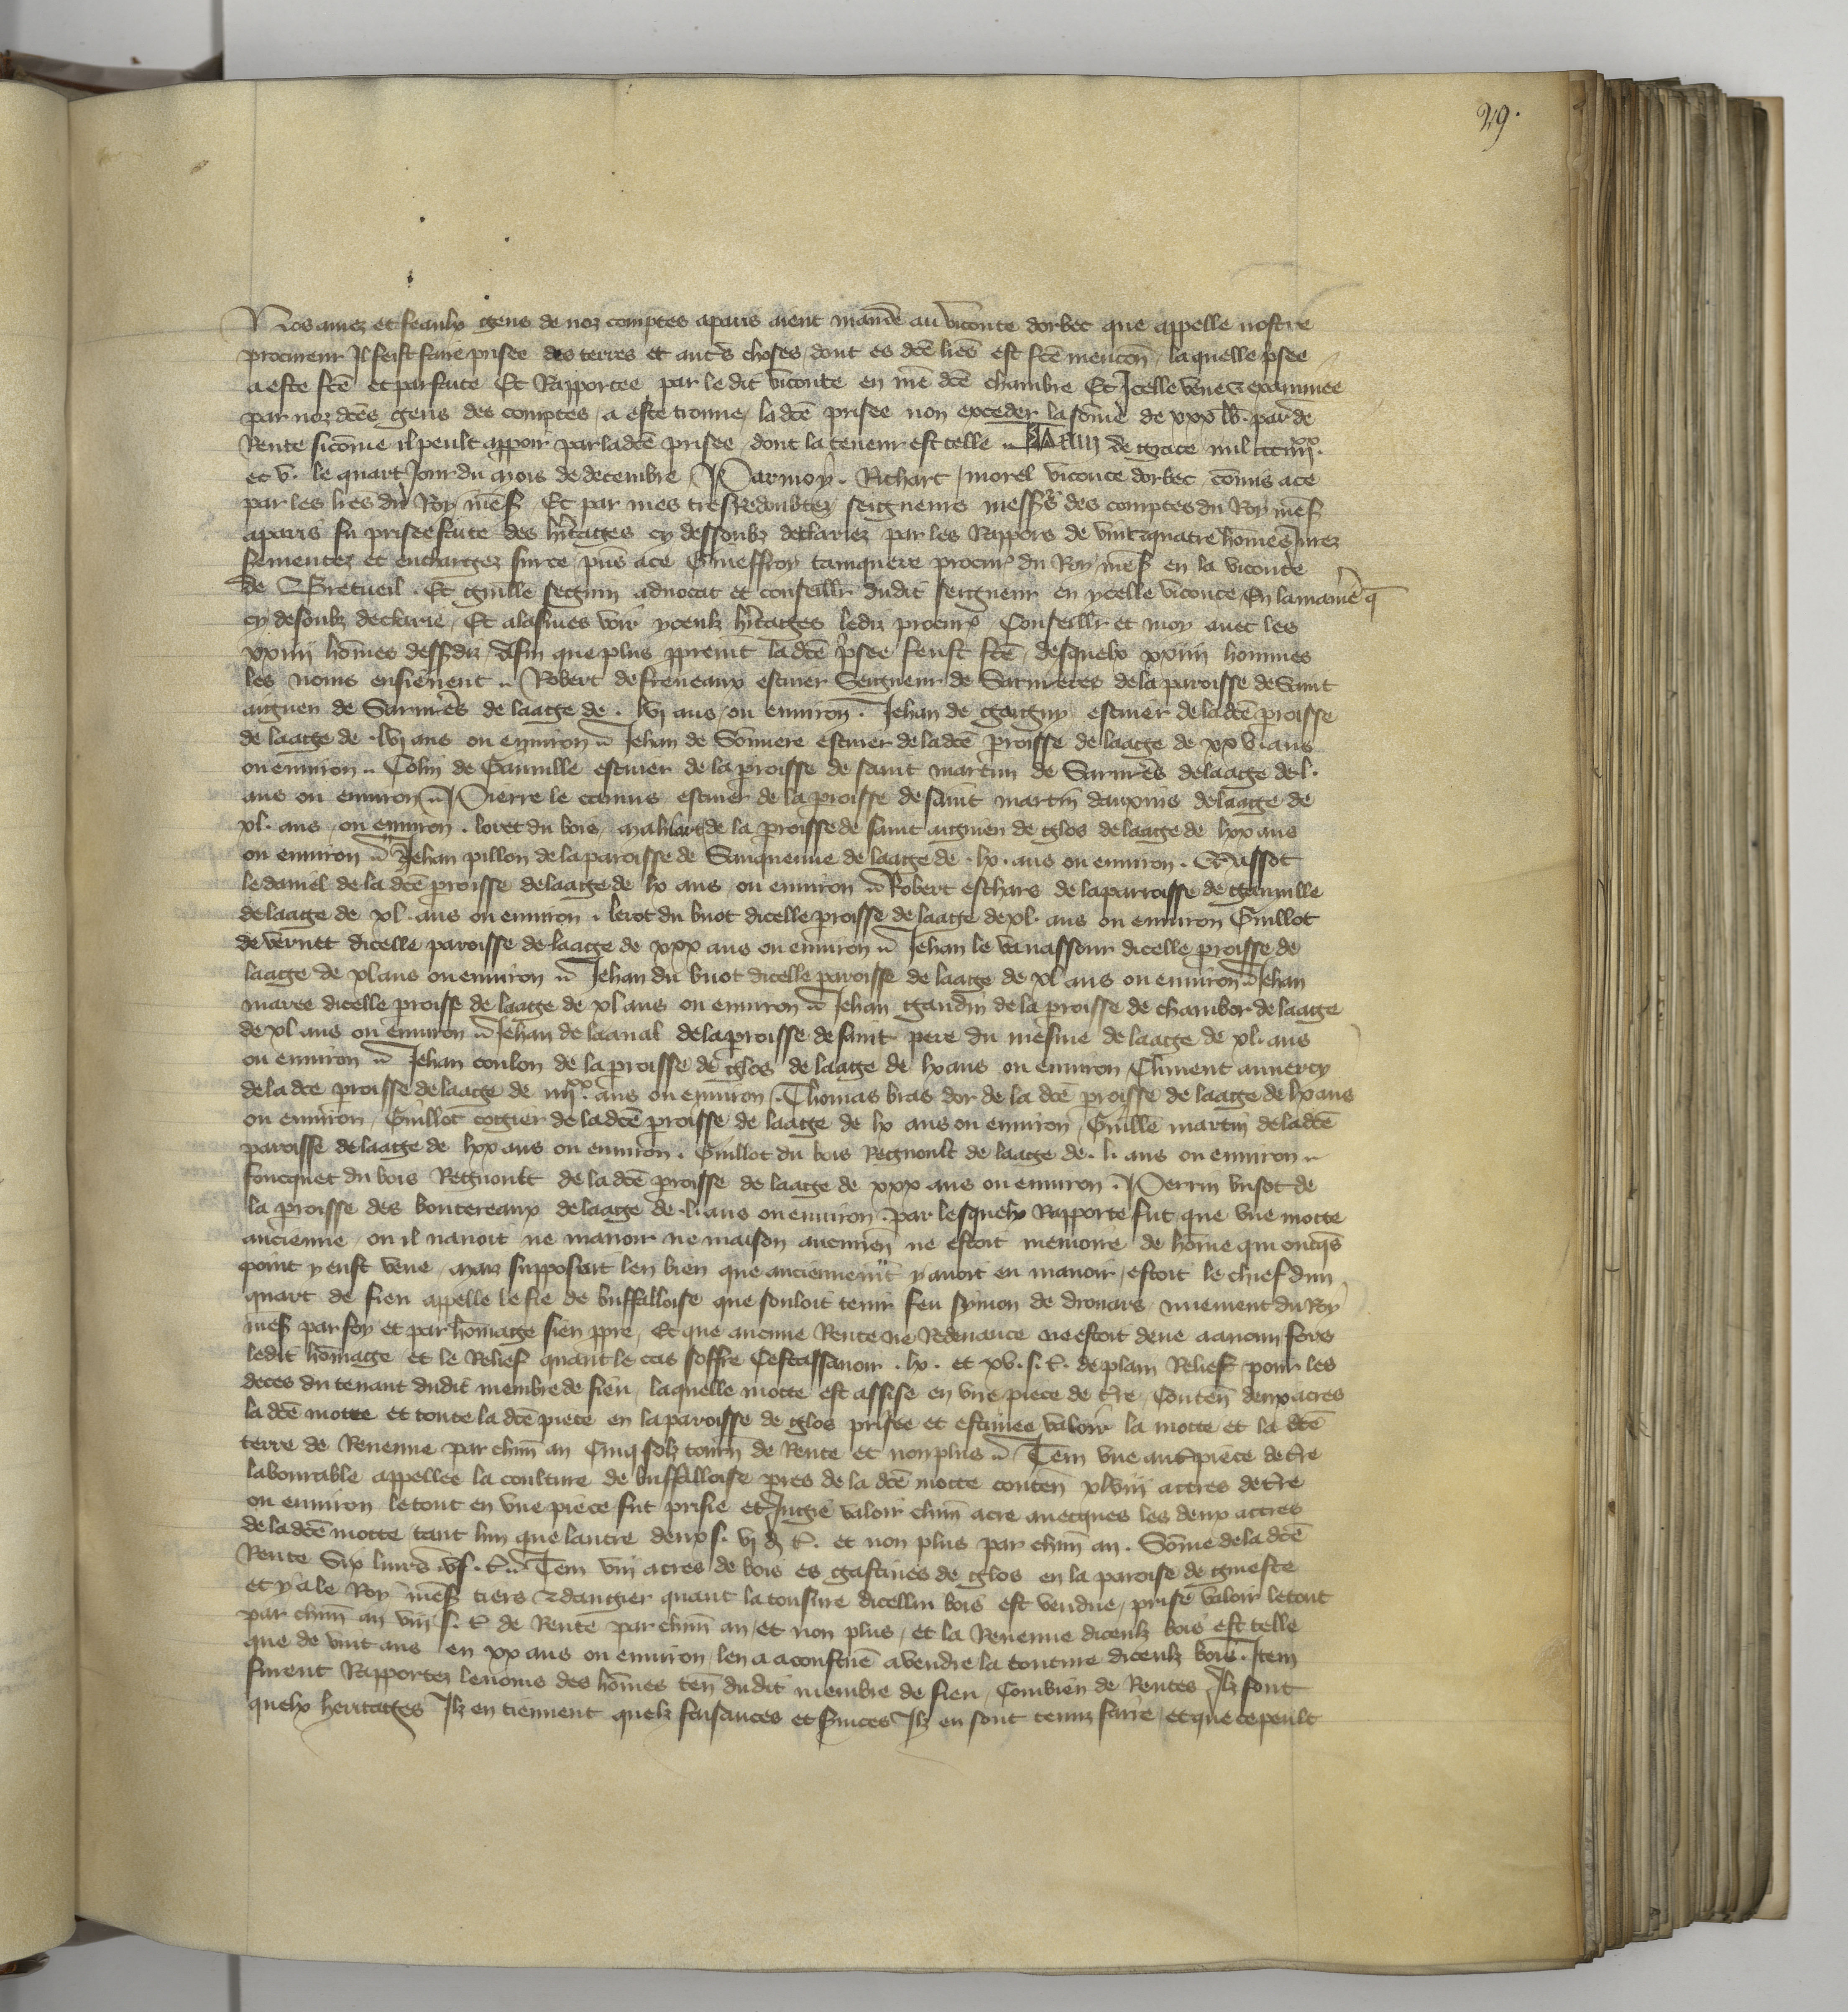 29.
Nos amez et feaulx gens de noz comptes a paris aient mande au viconte dorbec que appelle nostre
procureur Il feist faire prisee des terres et autres choses dont es dces lres est fce mencon laquelle psee
a este fce et parfaite Et Rapportee par le dit viconte en nre dce chambre Et Icelle veue et examinee
par noz dces gens des comptes a este trouve ladce prisee non exceder la somme de xxx lb. par de
Rente sicome il peult apparoir par ladce prisee dont la teneur est telle Lan de grace mil ccc iiiixx
et v. le quart Jour du mois de decembre Par moy Richart morel viconte dorbec comis ace
par les lres du Roy nres Et par mes tresredoubtez seigneurs messrs des comptes du Roy nres
aparis fu prisee faicte des hritages cy dessoubz declariez par les Rappors de vint et quatre homes Jurez
sermentez et enchargez sur ce pns ace Gueffroy tanquere procur du Roy nres en la viconte
de Bretueil. Et guille seguin advocat et conseillr dudit seigneur en ycelle viconte En la maniere q
cy desoubz declarie, Et alasmes voir yceulx hritages lediz procur Conseillr et moy avec les
xxiiii homes dessdiz Afin que plus ppremt ladce psee feust fce, desquelx xxiiii hommes
les noms ensievent Robert de freneaux escuier Seigneur de Sarnieres de la paroisse de Saint
aignen de Sarnieres de laage de . lvi ans ou environ. Jehan de gauguy escuier de ladce proisse
de laage de .lvi ans ou environ Jehan de Sonnere escuier de ladce proisse de laage de xxvi ans
ou environ Colin de Gauville escuier de la proisse de saint martin de Sarnieres de laage de l.
ans ou environ Pierre le camus escuier de la proisse de saint martin dauxins de laage de
xl. ans ou environ . loret du bois mahiart de la proisse de saint aignien de glos de laage de lxx ans
ou environ Jehan pillon de la paroisse de Sauquenne de laage de .lx. ans ou environ.
le daniel de la dce proisse de laage de lx ans ou environ Robert eschars de la parroisse de gauville
de laage de xl. ans ou environ . lerot du buot dicelle proisse de laage de xl. ans ou environ Guillot
de vernet dicelle paroisse de laage de xxx ans ou environ Jehan le vavassour dicelle proisse de
laage de xl ans ou environ Jehan du buot dicelle paroisse de laage de xl ans ou environ Jehan
maree dicelle proisse de laage de xl ans ou environ Jehan gaudin de la proisse de chambor de laage
de xl ans ou environ Jehan de laanal de la proisse de saint pere du mesnie de laage de xl. ans
ou environ Jehan coulon de la proisse de glos de laage de lx ans ou environ Climent
de la dce proisse de laage de iiiixx. ans ou environ. Thomas bras dor de la dce proisse de laage de lx ans
ou environ, Guillot cogier de ladce proisse de laage de lx ans ou environ, Guille martin de ladce
paroisse de laage de lxx ans ou environ. Guillot du bois Regnoult de laage de .l. ans ou environ
foucquet du bois Regnoult de ladce proisse de laage de xxx ans ou environ. Perrin busot de
la proisse des boutereaux de laage de .l. ans ou environ. par lesquelx Rapporte fut que une motte
ancienne ou il navoit ne manoir ne maison aucunen ne estoit memoire de home qui onques
point y eust veue, maiz supposoit len bien que anciennemt y avoit eu manoir, estoit le chief dun
quart de fieu appelle le fie de buffalloise que souloit tenir feu symon de drouars nuement du Roy
nres par foy et par homage sien ppre, Et que aucune Rente ne Redevance ne estoit deue a aucun fors
ledit homage et le Relief quant le cas soffre Cestassavoir . lx. et xv. s. t. de plain Relief pour les
deces du tenant dudit membre de fieu, laquelle motte est assise en une piece de tre, Conten deux acres
la dce motte et toute la dce piece en la paroisse de glos prisee et estimee valoir la motte et la dce
terre de Revenue par chun an Cinq solz tourn de Rente et non plus Item une autre piece de tre
labourable appellee la coulture de buffalloise pres de la dce motte conten xlviii acres de tre
ou environ le tout en une piece fut prisie et Jugie valoir chun acre avecques les deux acres
de ladce motte tant lun que lautre deux s. vi d t. et non plus par chun an. Some de ladce
Rente Six livres vs. t. Item viii acres de bois es gastines de glos en la paroisse de gueste
et y a le Roy nres tiers et dangier quant la tonsure dicellui bois est vendue, prise valoir le tout
par chun an viii s. t de Rente par chun an, et non plus, et la Revenue diceulz bois est telle
que de vint ans en xx ans ou environ len a aconstume a vendre la tonture diceulz bois. Item
furent Rapportez les noms des homes ten dudit membre de fieu, Combien de Rentes Ilz font
quelx heritages Ilz en tiennent quelz faisances et services Ilz en sont tenuz faire, et que ce peult